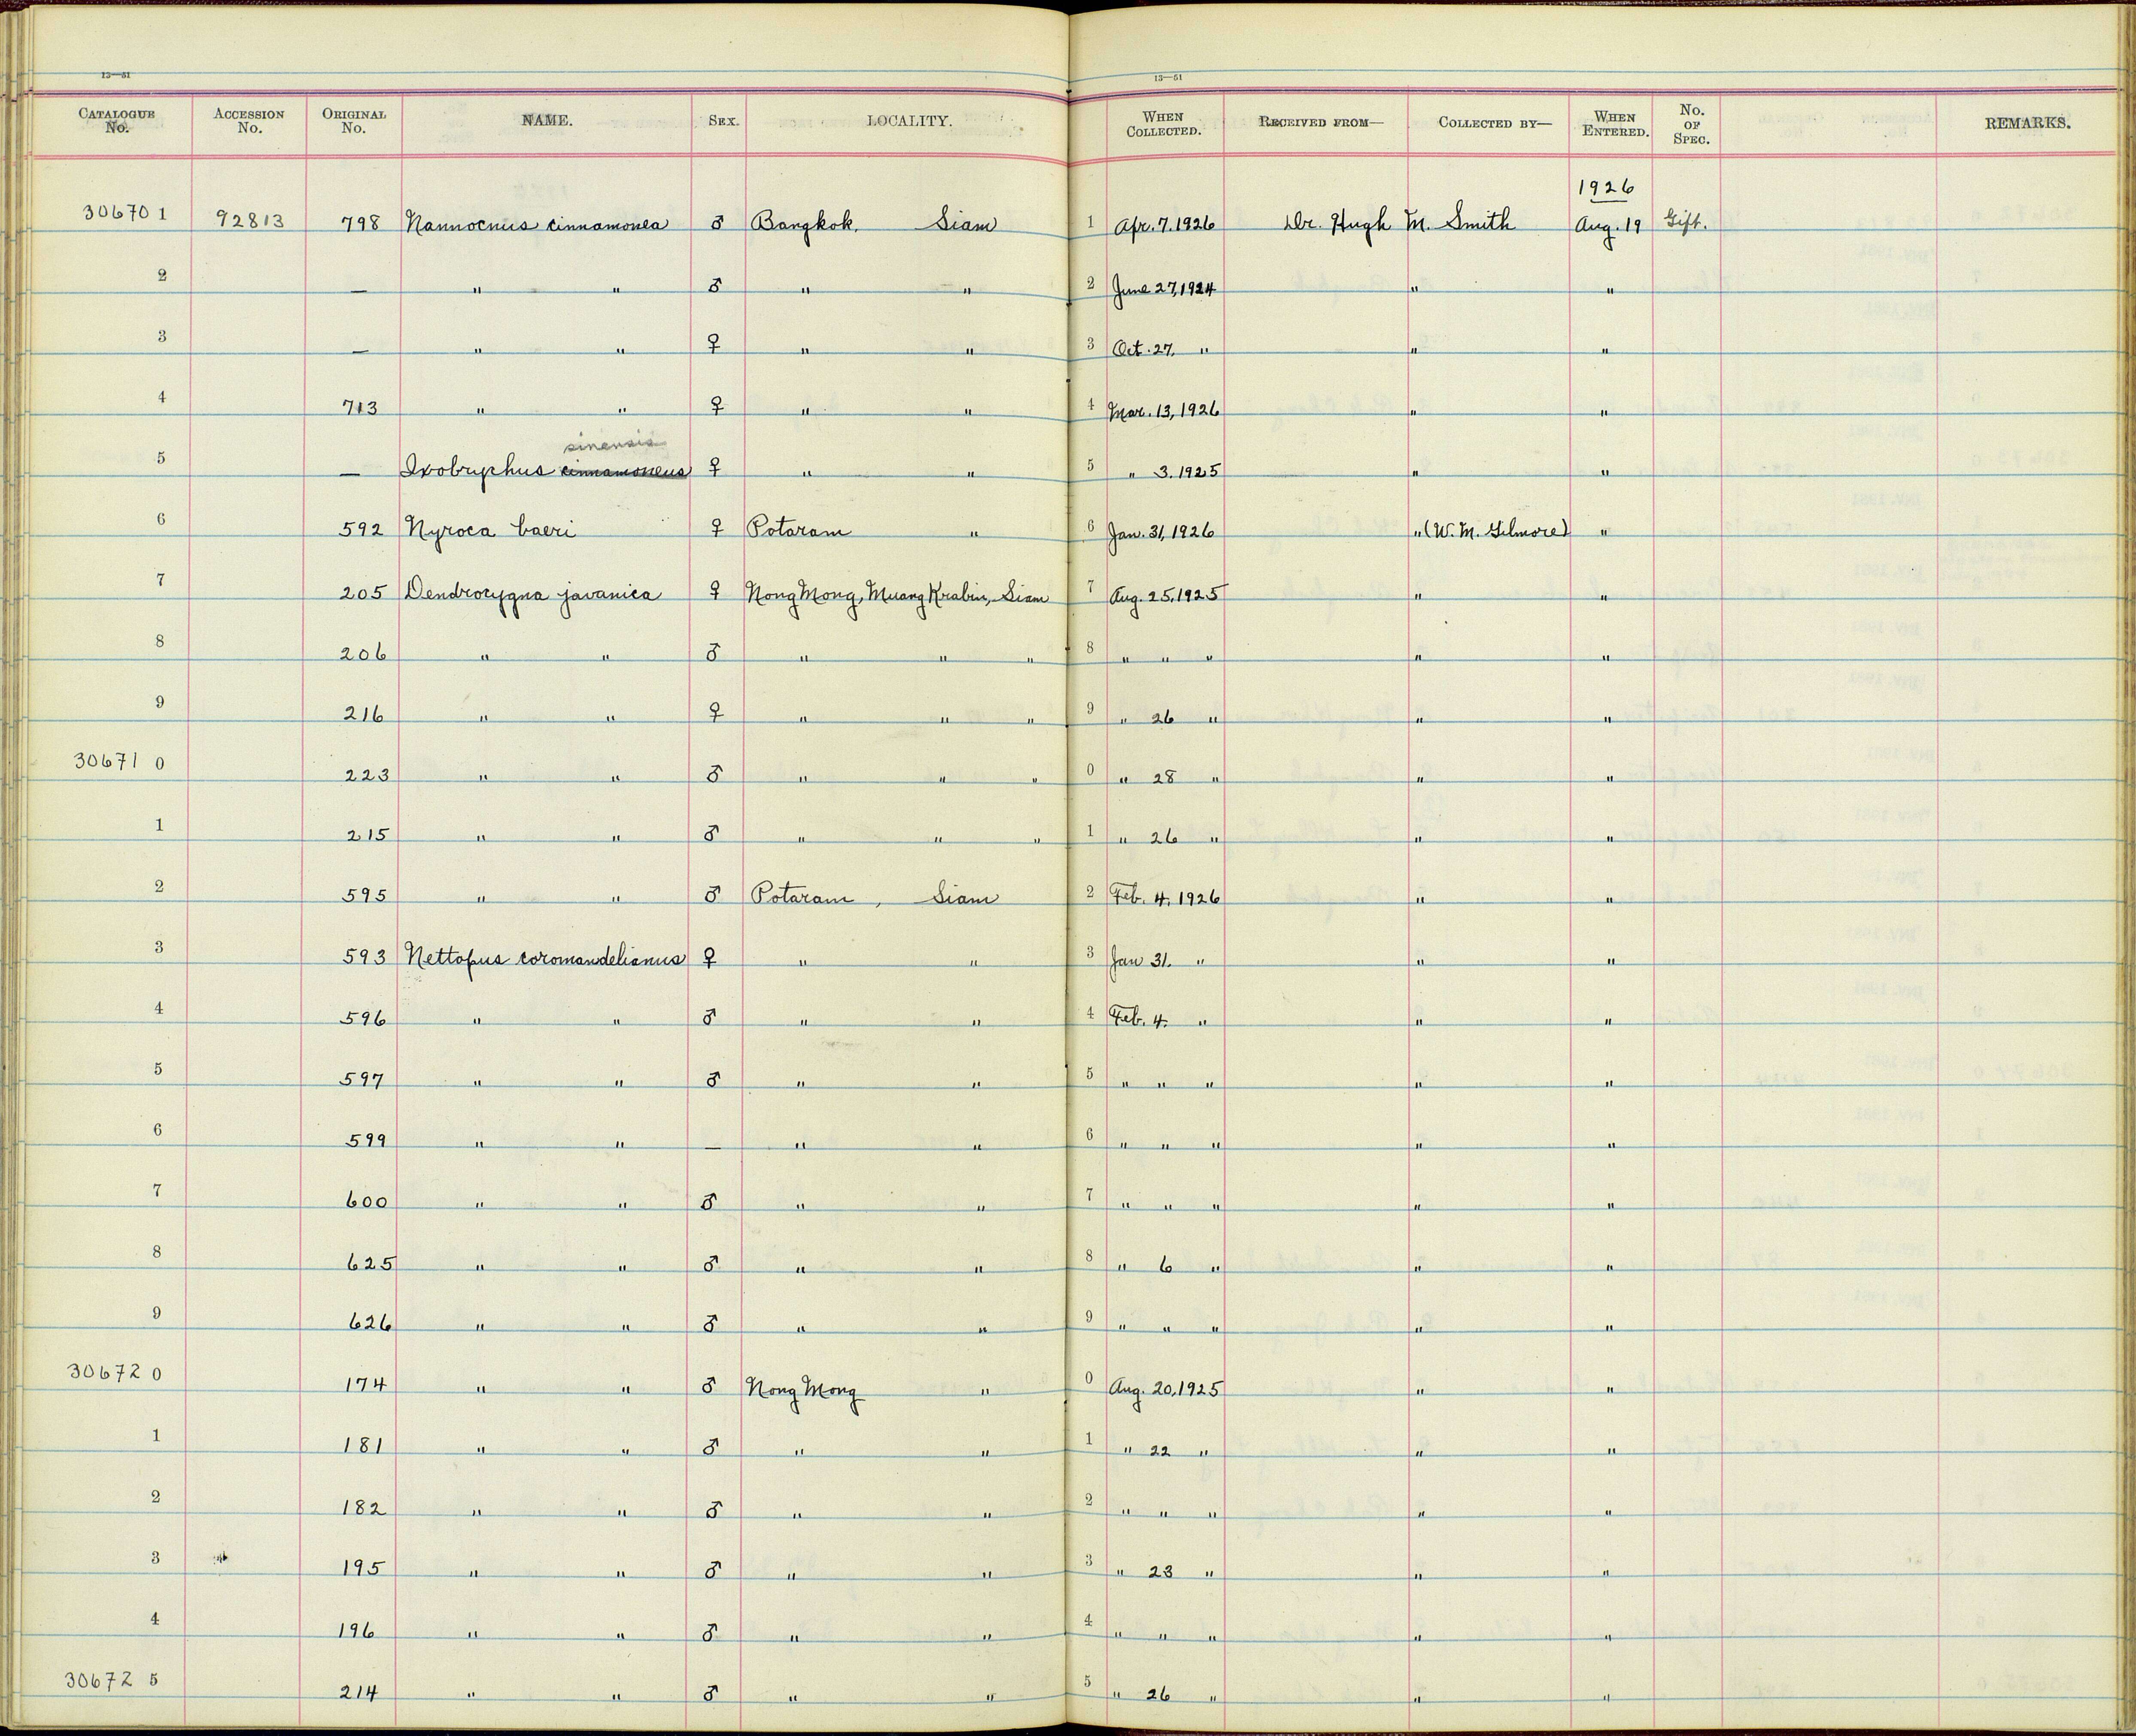 13—51 13—51
CATALOGUE No. ACCESSION No. ORIGINAL No. NAME. SEX. LOCALITY. WHEN COLLECTED. RECEIVED FROM— COLLECTED BY— WHEN ENTERED. No. OF SPEC. REMARKS.
1926
306701 92813 798 Nannocnus cinnamonea ♂ Bangkok, Siam 1 Apr. 7. 1926 Dr. Hugh M. Smith Aug. 19 Gift.
2 — " " ♂ " " 2 June 27, 1924 " "
3 — " " ♀ " " 3 Oct. 27, " " "
4 713 " " ♀ " " 4 Mar. 13, 1926 " "
sinensis
5 — Ixobrychus cinnamoneus ♀ " " 5 " 3. 1925 " "
6 592 Nyroca baeri ♀ Potaram " 6 Jan. 31, 1926 " (W. M. Gilmore) "
7 205 Dendrocygna javanica ♀ Nong Mong, Muang Krabin, Siam 7 Aug. 25, 1925 " "
8 206 " " ♂ " " " 8 " " " " "
9 216 " " ♀ " " " 9 " 26 " " "
306710 223 " " ♂ " " " 0 " 28 " " "
1 215 " " ♂ " " " 1 " 26 " " "
2 595 " " ♂ Potaram, Siam 2 Feb. 4, 1926 " "
3 593 Nettopus coromandelianus ♀ " " 3 Jan 31. " " "
4 596 " " ♂ " " 4 Feb. 4. " " "
5 597 " " ♂ " " 5 " " " " "
6 599 " " — " " 6 " " " " "
7 600 " " ♂ " " 7 " " " " "
8 625 " " ♂ " " 8 " 6 " " "
9 626 " " ♂ " " 9 " " " " "
306720 174 " " ♂ Nong Mong " 0 Aug. 20, 1925 " "
1 181 " " ♂ " " 1 " 22 " " "
2 182 " " ♂ " " 2 " " " " "
3 195 " " ♂ " " 3 " 23 " " "
4 196 " " ♂ " " 4 " " " " "
306725 214 " " ♂ " " 5 " 26 " " "